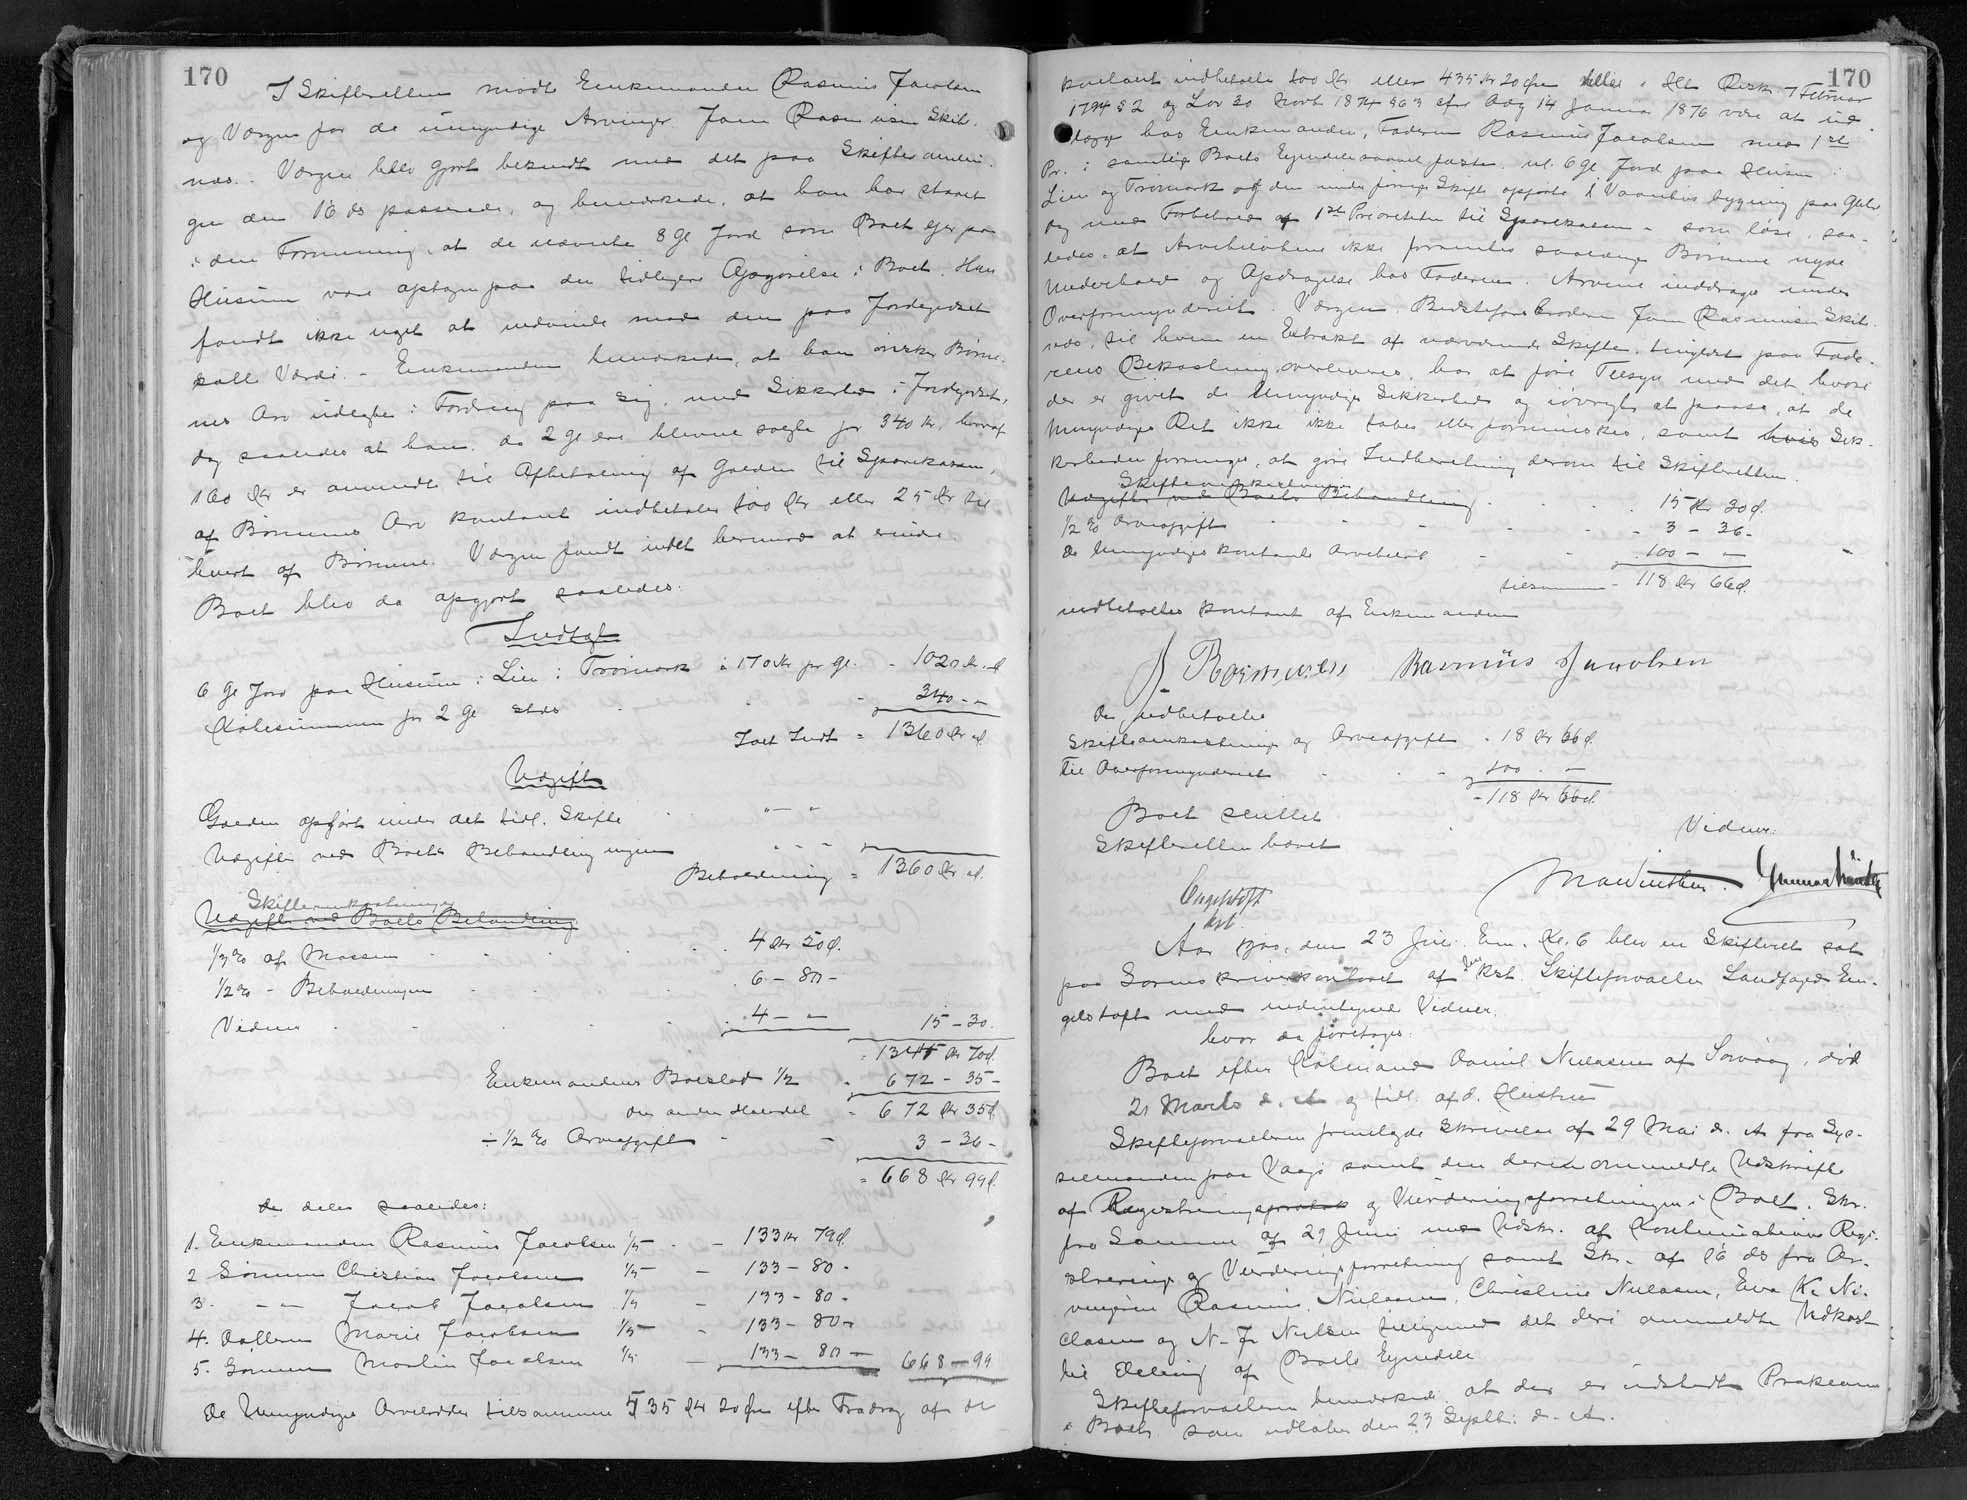 170
I Skifteretten mødte Enkemanden Rasmus Jacobsen
og Værgen for de umyndige Arvinger Jam Rasmussen Skil-
næs. Værgen blev gjort bekendt med det paa Skiftesamlin-
gen den 16 ds passerede, og bemærkede, at han har staaet
i den Formening, at de nævnte 8 Gl Jord som Boet ejer paa
Husum var optagen paa den tidligere Opgørelse i Boet. Han
fandt ikke noget at indvende mod den paa Jordegodset
satte Værdi. - Enkemanden bemærkede, at han ønsker Børne-
nes Arv udlagt i Fordring paa sig, med Sikkerhed i Jordgodset,
dog saaledes at han, da 2 Gl ere blevne solgte for 340 Kr, hvoraf
160 Kr er anvendt til Afbetaling af Gælden til Sparekassen,
af Børnenes Arv kontant indbetaler 100 Kr eller 25 Kr til
hvert af Børnene. Værgen fandt intet hermod at erindre.
Boet blev da opgjort saaledes:
Indtægt
6 Gl Jord paa Husum i Lien i Trømark à 170 Kr pr Gl. - 1020 Kr. - Ø
Købesummen for 2 Gl stds - 340 - -
Ialt Indt = 1360 Kr - Ø.
Udgift
Gælden opført under det tidl. Skifte " - "
Udgifter ved Boets Behandling ingen " - "
Beholdning = 1360 Kr - Ø.
Skifteomkostninger
Udgifter ved Boets Behandling
1/3 % af Massen 4 Kr 50 Ø.
1/2 % - Beholdningen 6 - 80 -
Vidner 4 - - 15 - 30.
= 1344 Kr 70 Ø.
Enkemandens Boeslod 1/2 - 672 - 35 -
den anden Halvdel = 672 Kr 35 Ø.
÷ 1/2 % Arveafgift - - 3 - 36 -
= 668 Kr 99 Ø.
der deles saaledes:
1. Enkemanden Rasmus Jacobsen 1/5 - - 133 Kr 79 Ø.
2 Sønnen Christian Jacobsen 1/5 - 133 - 80 -
3. - " - Jacob Jacobsen 1/5 - 133 - 80 -
4. Datteren Marie Jacobsen 1/5 - 133 - 80 -
5. Sønnen Morten Jacobsen 1/5 - 133 - 80 - 668 - 99
De Umyndiges Arvelodder tilsammen 535 Kr 20 Øre efter Fradrag af de
170
kontant indbetalte 100 Kr eller 435 Kr 20 Øre Resk. 7 Februar
1794 § 2 og Lov 30 Novb 1874 § 63 efter Adg 14 Januar 1876 være at ud-
lægge hos Enkemanden, Faderen Rasmus Jacobsen med 1ste
Pr. i samtlige Boets Ejendele saavel faste. nl. 6 Gl Jord paa Husum i
Lien og Trømark og den under forrige Skifte opførte 1 Vaaningsbygning paa
dog med Forbehold af 1ste Prioriteten til Sparekassen - som løse, saa-
ledes, at Arvebeløbene ikke forrentes saalænge Børnene nyde
Underhold og Opdragelse hos Faderen. Arvene inddrages under
Overformynderiet. Værgen, Bedstefars broderen Jam Rasmussen Skil-
næs, til hvem en Extrakt af nærværende Skifte, tinglæst paa Fade-
rens Bekostning, overleveres, har at føre Tilsyn med det hvori
der er givet de Umyndige Sikkerhed og iøvrigt at paase, at de
Umyndiges Ret ikke ikke tabes eller forringes, samt hvis Sik-
kerheden forringes, at gøre Indberetning derom til Skifteretten.
Skifteomkostninger
Udgifter ved Boets Behandling 15 Kr 30 Ø.
1/2 % Arveafgift 3 - 36 -
de Umyndiges kontante Arvebeløb 100 - -
tilsammen - 118 Kr 66 Ø.
indbetales kontant af Enkemanden
J. Rasmussen Rasmus Jacobsen
Der udbetales
Skifteomkostninger og Arveafgift - 18 Kr 66 Ø.
til Overformynderiet 100 - -
- 118 Kr 66 Ø.
Boet sluttet
Skifteretten hævet
Vidner:
Engelstoft
kst.
MaWinther. Gunnar
Aar 1900, den 23 Juli Em. Kl. 6 blev en Skifteret sat
paa Sorenskriverkontoret af den kst. Skifteforvalter Landfoged En-
gelstoft med undertegnede Vidner.
hvor da foretoges:
Boet efter Købmand Daniel Nielasen af Sørvaag, død
21 Marts d. A. og tidl. afd. Hustru
Skifteforvalteren fremlagde Skrivelse af 29 Mai d. A. fra Sys-
selmanden paa Vaagø samt den deri ommeldte Udskrift
af Registreringsprotok og Vurderingsforretningen i Boet. Skr.
fra Samme af 29 Juni med Udskr. af Kontinuations Regi-
strerings og Vurderingsforretning samt Skr. af 16 ds fra Ar-
vingerne Rasmus Nielasen, Christine Nielasen, Eva K. Ni-
clasen og N. J. Nielsen tilligemed det deri ommeldte Udkast
til Deling af Boets Ejendele
Skifteforvalteren bemærkede, at der er udstedt Proklama
i Boet, som udløber den 23 Septb: d. A.